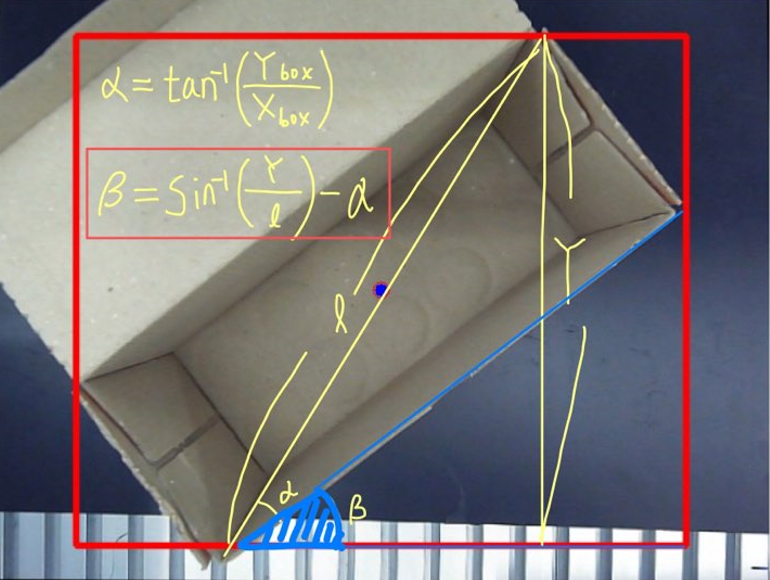 α = tan⁻¹(Ybox/Xbox)
β = Sin⁻¹(Y/l) - α
l
Y
α
β